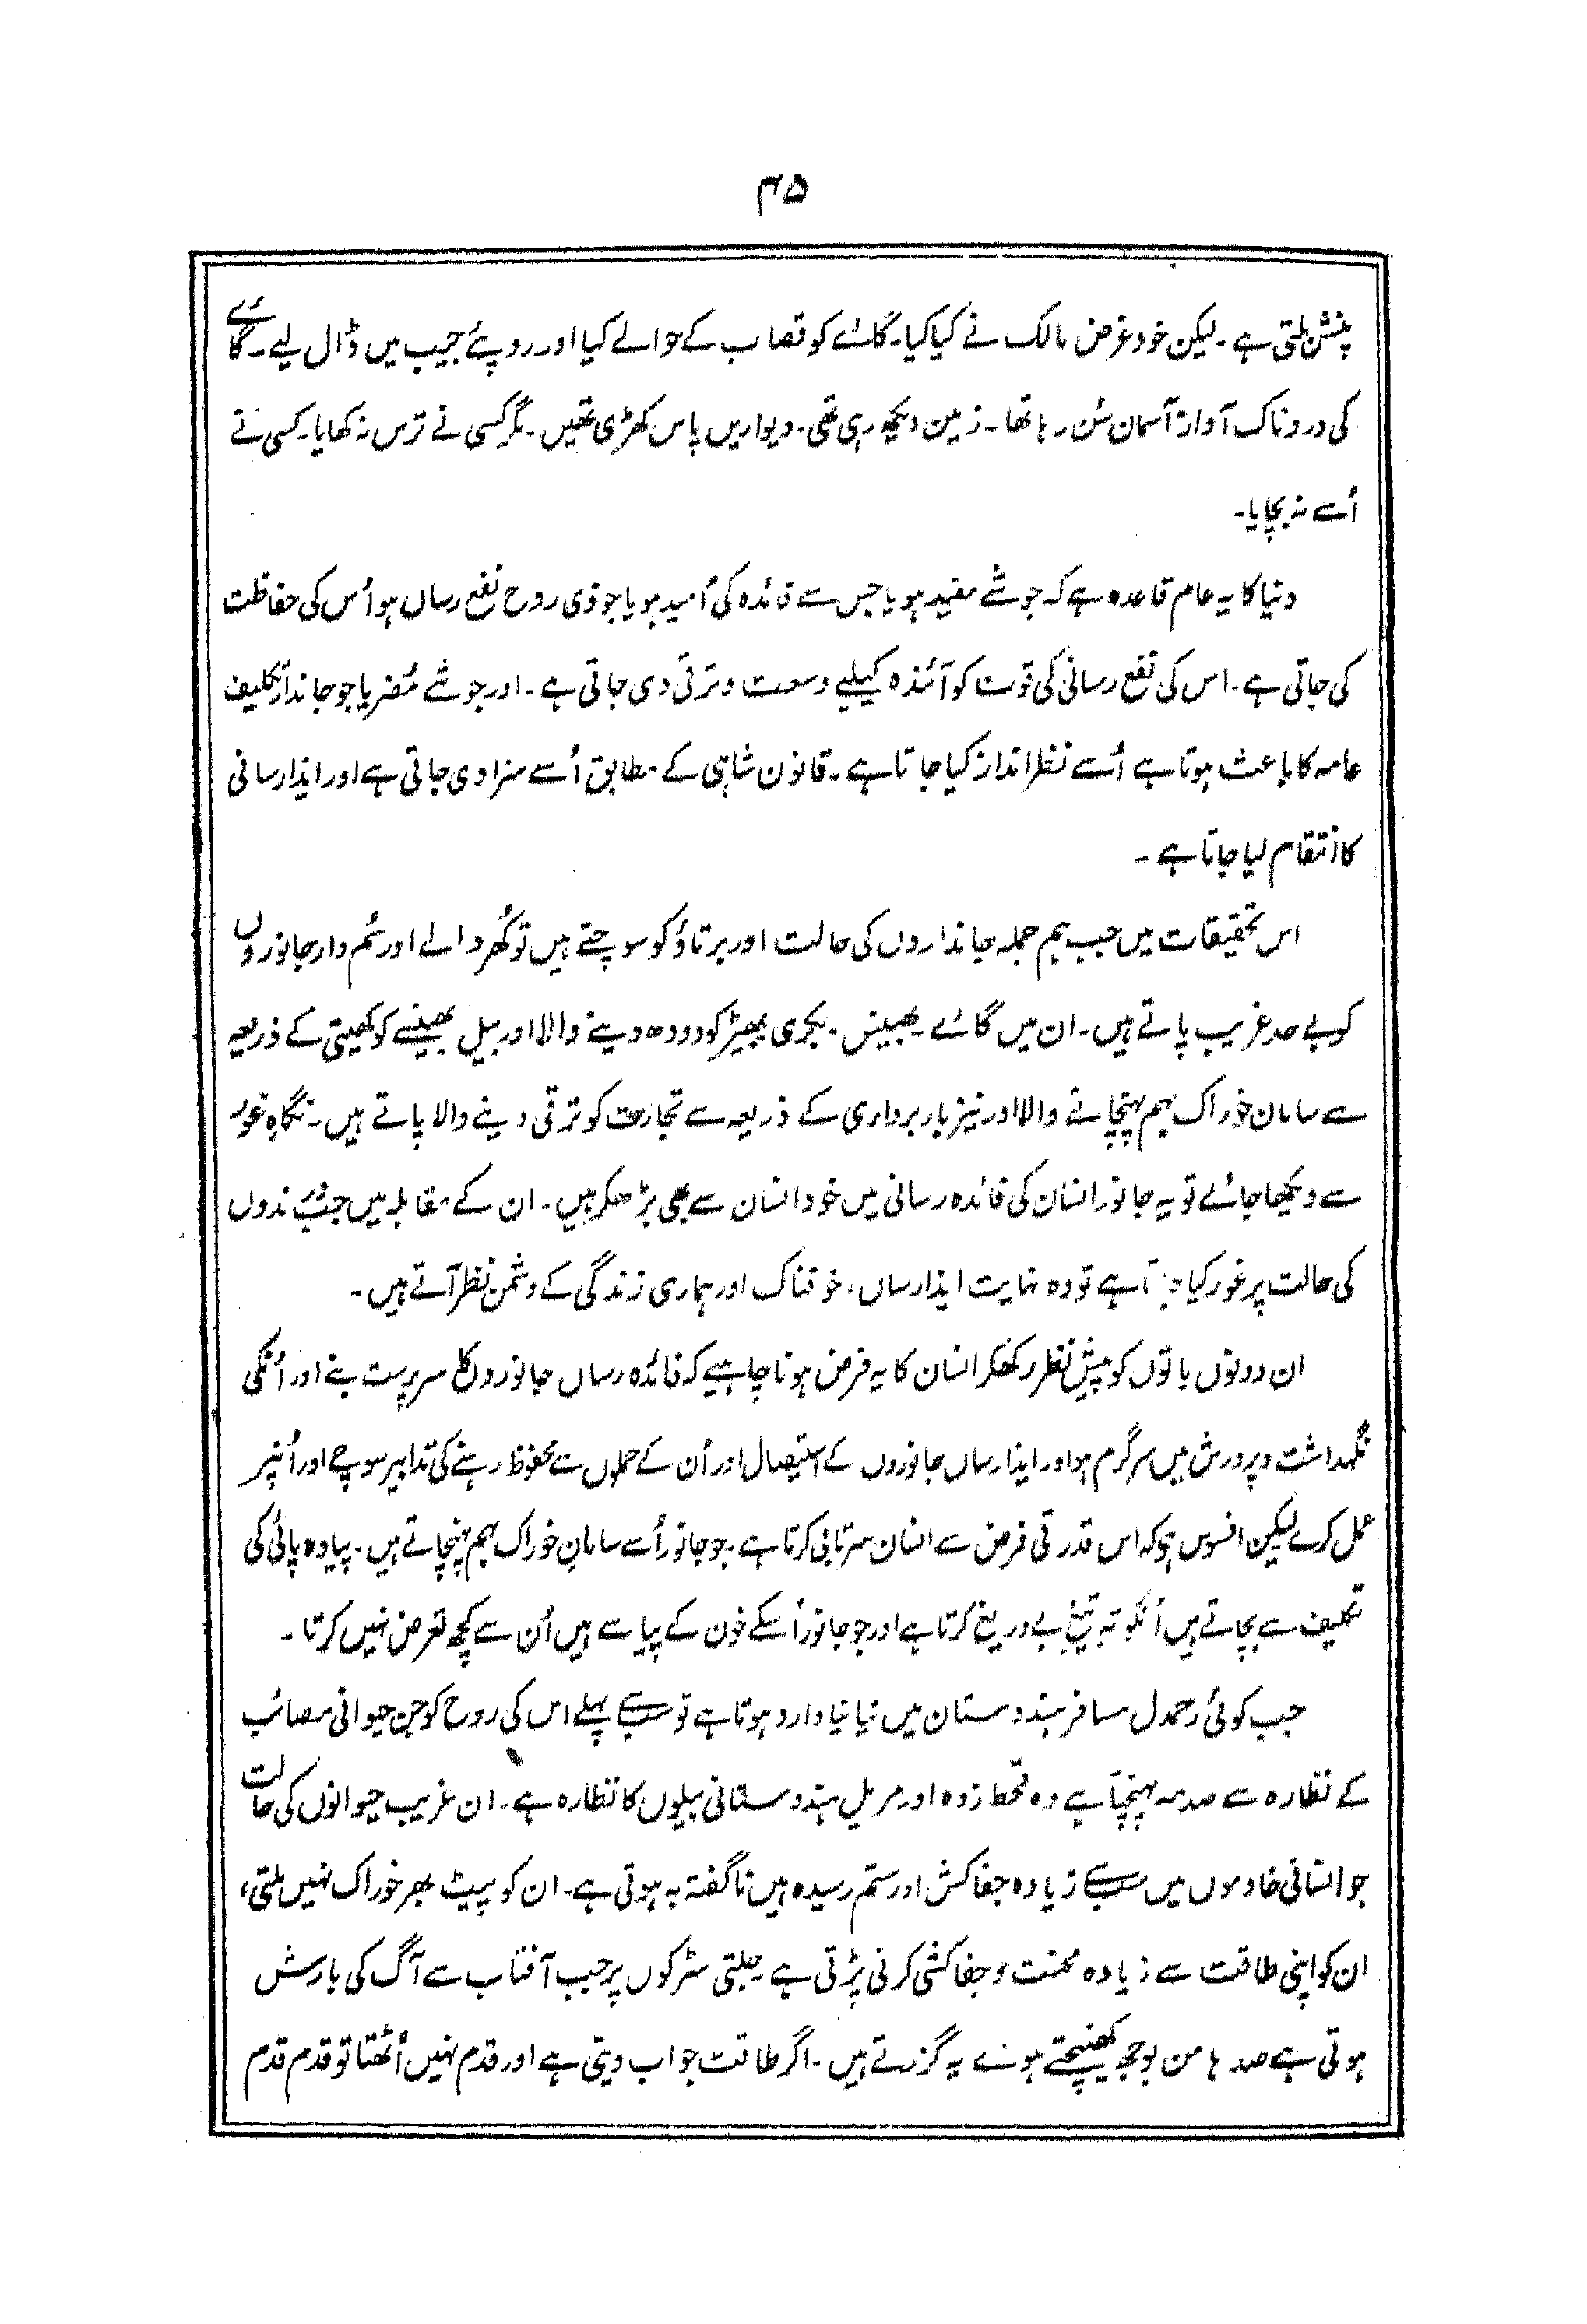 ۴۵
پنشن ملتی ہے۔ لیکن خود غرض مالک نے کیا کیا۔ گائے کو قصاب کے حوالے کیا اور روپئے جیب میں ڈال لیے۔ گائے
کی دردناک آواز آسمان سُن رہا تھا۔ زمین دیکھ رہی تھی۔ دیواریں پاس کھڑی تھیں۔ مگر کسی نے ترس نہ کھایا۔ کسی نے
اُسے نہ بچایا۔
دنیا کا یہ عام قاعدہ ہے کہ جو شے مفید ہو یا جس سے فائدہ کی اُمید ہو یا جو ذی روح نفع رساں ہو اُس کی حفاظت
کی جاتی ہے۔ اس کی نفع رسانی کی قوت کو آئندہ کیلیے وسعت و ترقی دی جاتی ہے۔ اور جو شے مُضر یا جو جاندار تکلیف
عامہ کا باعث ہوتا ہے اُسے نظر انداز کیا جاتا ہے۔ قانون شاہی کے مطابق اُسے سزا دی جاتی ہے اور ایذا رسانی
کا انتقام لیا جاتا ہے۔
اس تحقیقات میں جب ہم جملہ جانداروں کی حالت اور برتاؤ کو سوچتے ہیں تو کُھر والے اور سُم دار جانوروں
کو بے حد غریب پاتے ہیں۔ ان میں گائے۔ بھینس۔ بکری بھیڑ کو دودھ دینے والا اور بیل بھینسے کو کھیتی کے ذریعہ
سے سامان خوراک بہم پہنچانے والا اور نیز باربرداری کے ذریعہ سے تجارت کو ترقی دینے والا پاتے ہیں۔ نگاہِ غور
سے دیکھا جائے تو یہ جانور انسان کی فائدہ رسانی میں خود انسان سے بھی بڑھکر ہیں۔ ان کے مقابلہ میں جب درندوں
کی حالت پر غور کیا جاتا ہے تو وہ نہایت ایذا رساں، خوفناک اور ہماری زندگی کے دشمن نظر آتے ہیں۔
ان دونوں باتوں کو پیش نظر رکھکر انسان کا یہ فرض ہونا چاہیے کہ فائدہ رساں جانوروں کا سرپرست بنے اور اُنکی
نگہداشت و پرورش میں سرگرم ہو اور ایذا رساں جانوروں کے استیصال اور اُن کے حملوں سے محفوظ رہنے کی تدابیر سوچے اور اُنپر
عمل کرے لیکن افسوس ہی کہ اس قدرتی فرض سے انسان سرتابی کرتا ہے۔ جو جانور اُسے سامانِ خوراک بہم پہنچاتے ہیں۔ پیادہ پائی کی
تکلیف سے بچاتے ہیں اُنکو تہ تیغ بے دریغ کرتا ہے اور جو جانور اُسکے خون کے پیاسے ہیں اُن سے کچھ تعرض نہیں کرتا۔
جب کوئی رحمدل مسافر ہندوستان میں نیا نیا وارد ہوتا ہے تو سب سے پہلے اس کی روح کو جن حیوانی مصائب
کے نظارہ سے صدمہ پہنچتا ہے وہ قحط زدہ اور مریل ہندوستانی بیلوں کا نظارہ ہے۔ ان غریب حیوانوں کی حالت
جو انسانی خادموں میں سب سے زیادہ جفاکش اور ستم رسیدہ ہیں ناگفتہ بہ ہوتی ہے۔ ان کو پیٹ بھر خوراک نہیں ملتی،
ان کو اپنی طاقت سے زیادہ محنت و جفاکشی کرنی پڑتی ہے۔ جلتی سڑکوں پر جب آفتاب سے آگ کی بارش
ہوتی ہے صدہا من بوجھ کھینچتے ہوئے یہ گزرتے ہیں۔ اگر طاقت جواب دیتی ہے اور قدم نہیں اُٹھتا تو قدم قدم